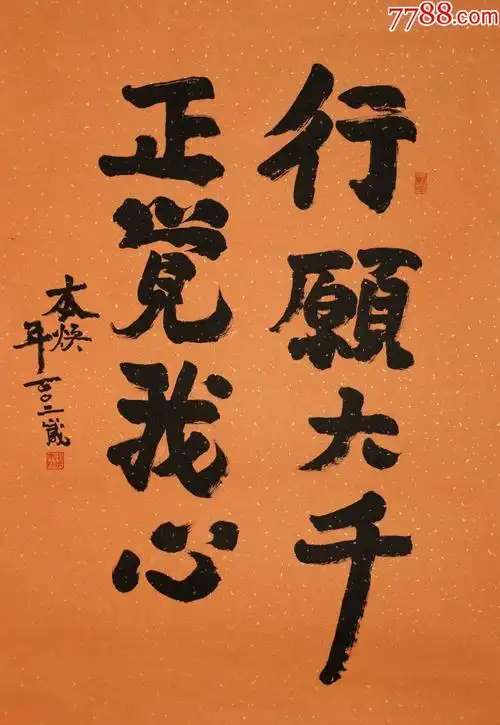 7788.com
行願大千
正覚我心
本焕
年一百〇二歲